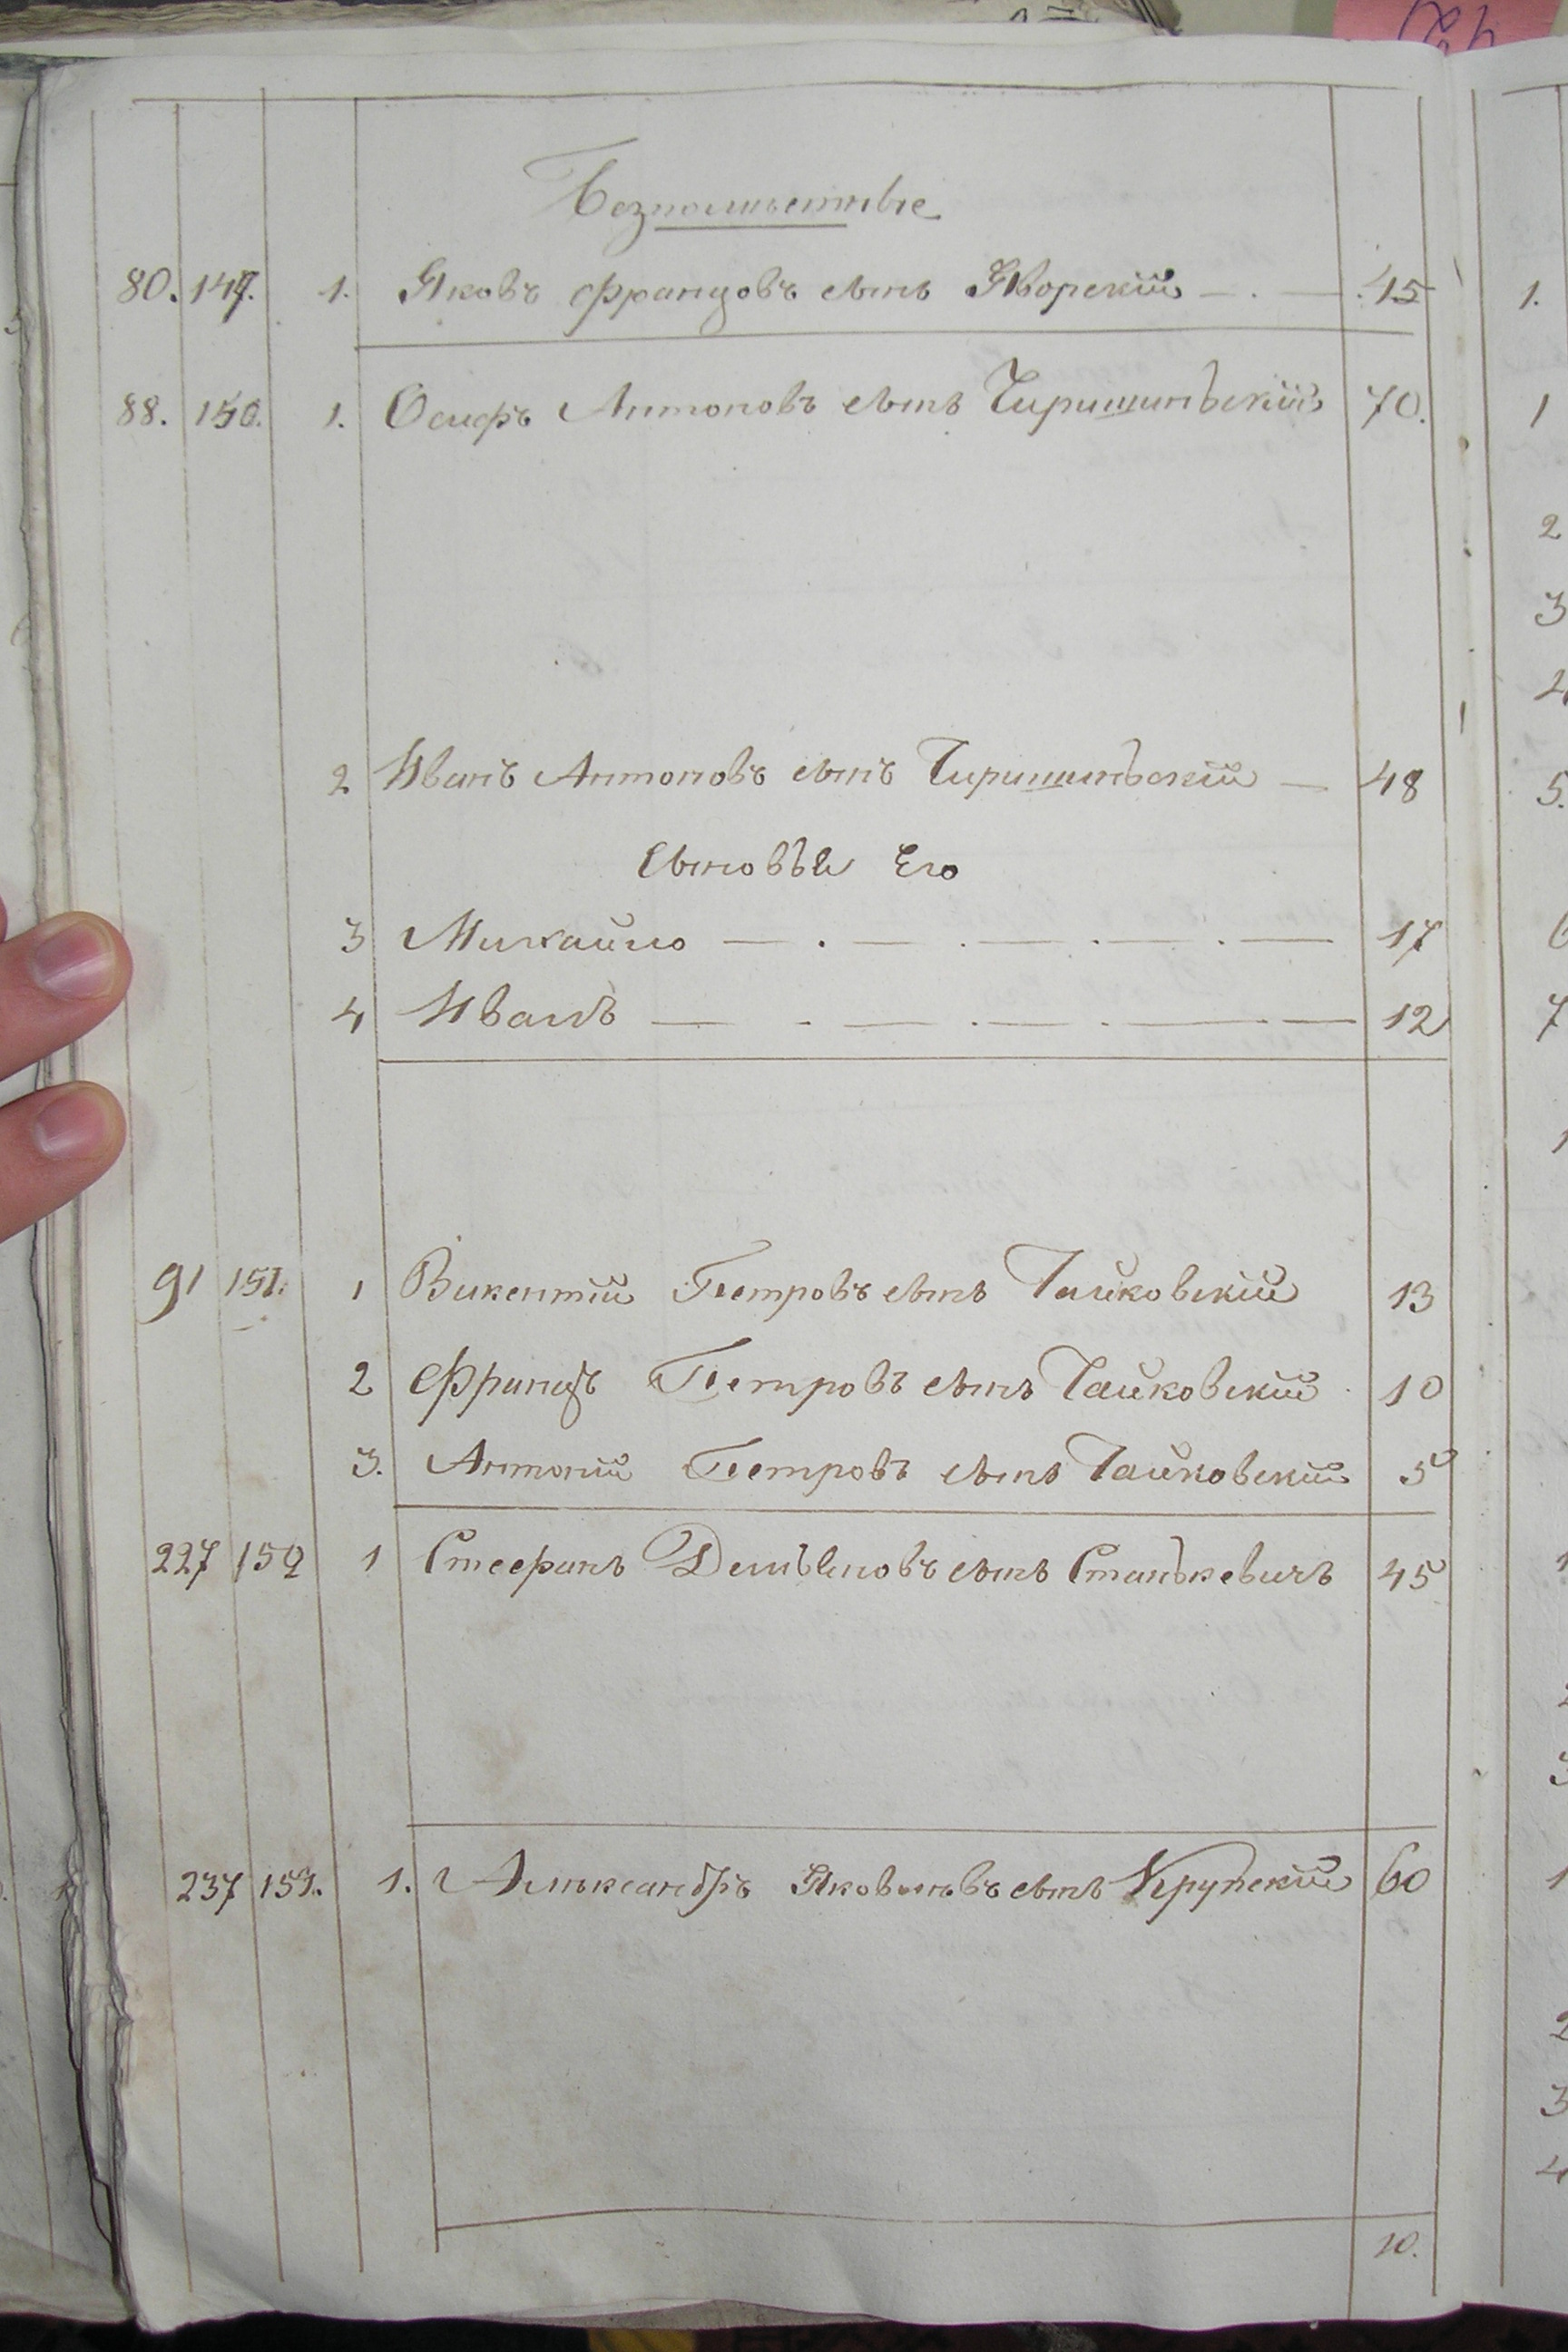 Безпоместные
80. 149. 1. Яковъ Францовъ сынъ Яворскій 45
88. 150. 1. Осифъ Антоновъ сынъ 70.
2 Иванъ Антоновъ сынъ 48
Сыновья Его
3 Михайло 17
4 Иванъ 12
91 151. 1 Викентій Петровъ сынъ Чайковскій 13
2 Францъ Петровъ сынъ Чайковскій 10
3. Антоній Петровъ сынъ Чайковскій 5
227 152 1 Стефанъ Демьяновъ сынъ Станькевичъ 45
237 153. 1. Яковлевъ сынъ Крупскій 60
10.
1.
1
2
3
4
5.
6
7
1
1
2
3
1
2
3
4